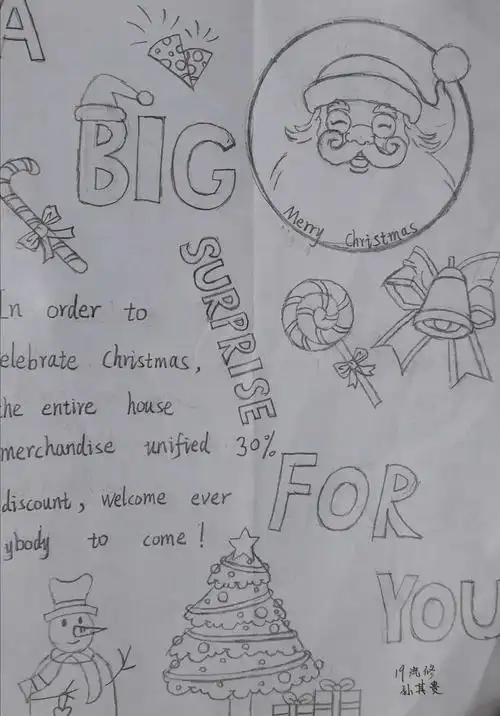 A
BIG
Merry Christmas
SURPRISE
In order to
elebrate Christmas,
the entire house
merchandise unified 30%
discount, welcome ever
ybody to come!
FOR
YOU
19汽修
孙其贵